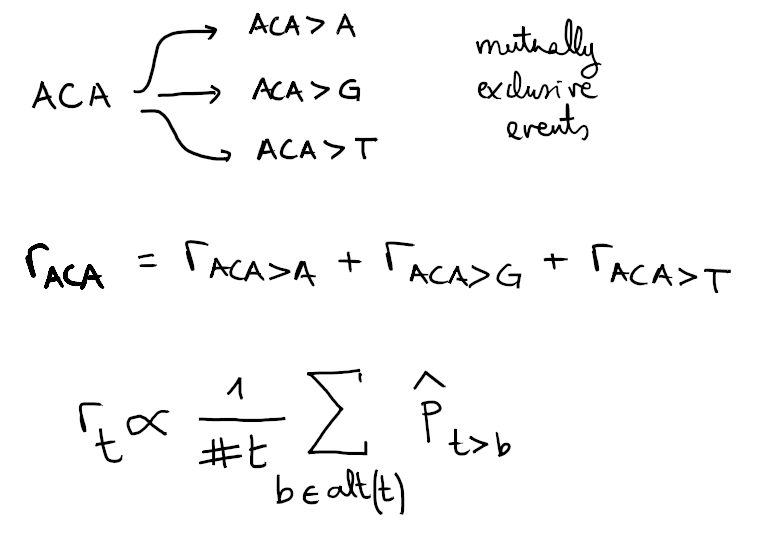 ACA > A
ACA
ACA > G
ACA > T
mutually
exclusive
events
r_ACA = r_ACA>A + r_ACA>G + r_ACA>T
r_t ∝ 1/#t ∑_{b ∈ alt(t)} P̂_{t>b}